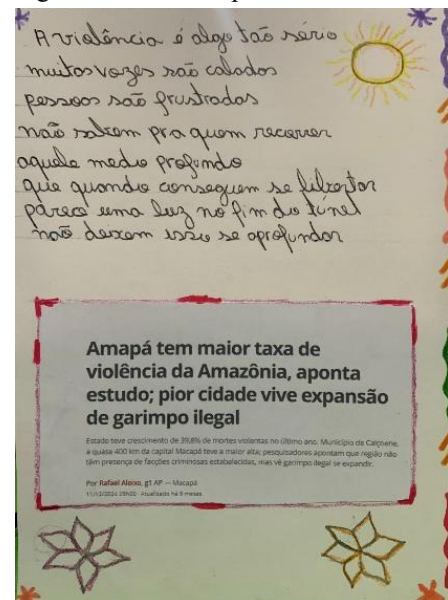 A violência é algo tão sério
muitos vozes são calados
pessoas são frustradas
não sabem pra quem recorrer
aquele medo profundo
que quando conseguem se libertar
parece uma luz no fim do túnel
não deixem isso se aprofundar
Amapá tem maior taxa de
violência da Amazônia, aponta
estudo; pior cidade vive expansão
de garimpo ilegal
Estado teve crescimento de 39,8% de mortes violentas no último ano. Município de Calçoene,
a quase 400 km da capital Macapá teve a maior alta; pesquisadores apontam que região não
têm presença de facções criminosas estabelecidas, mas vê garimpo ilegal se expandir.
Por Rafael Aleixo, g1 AP — Macapá
11/12/2024 Atualizado há 9 meses